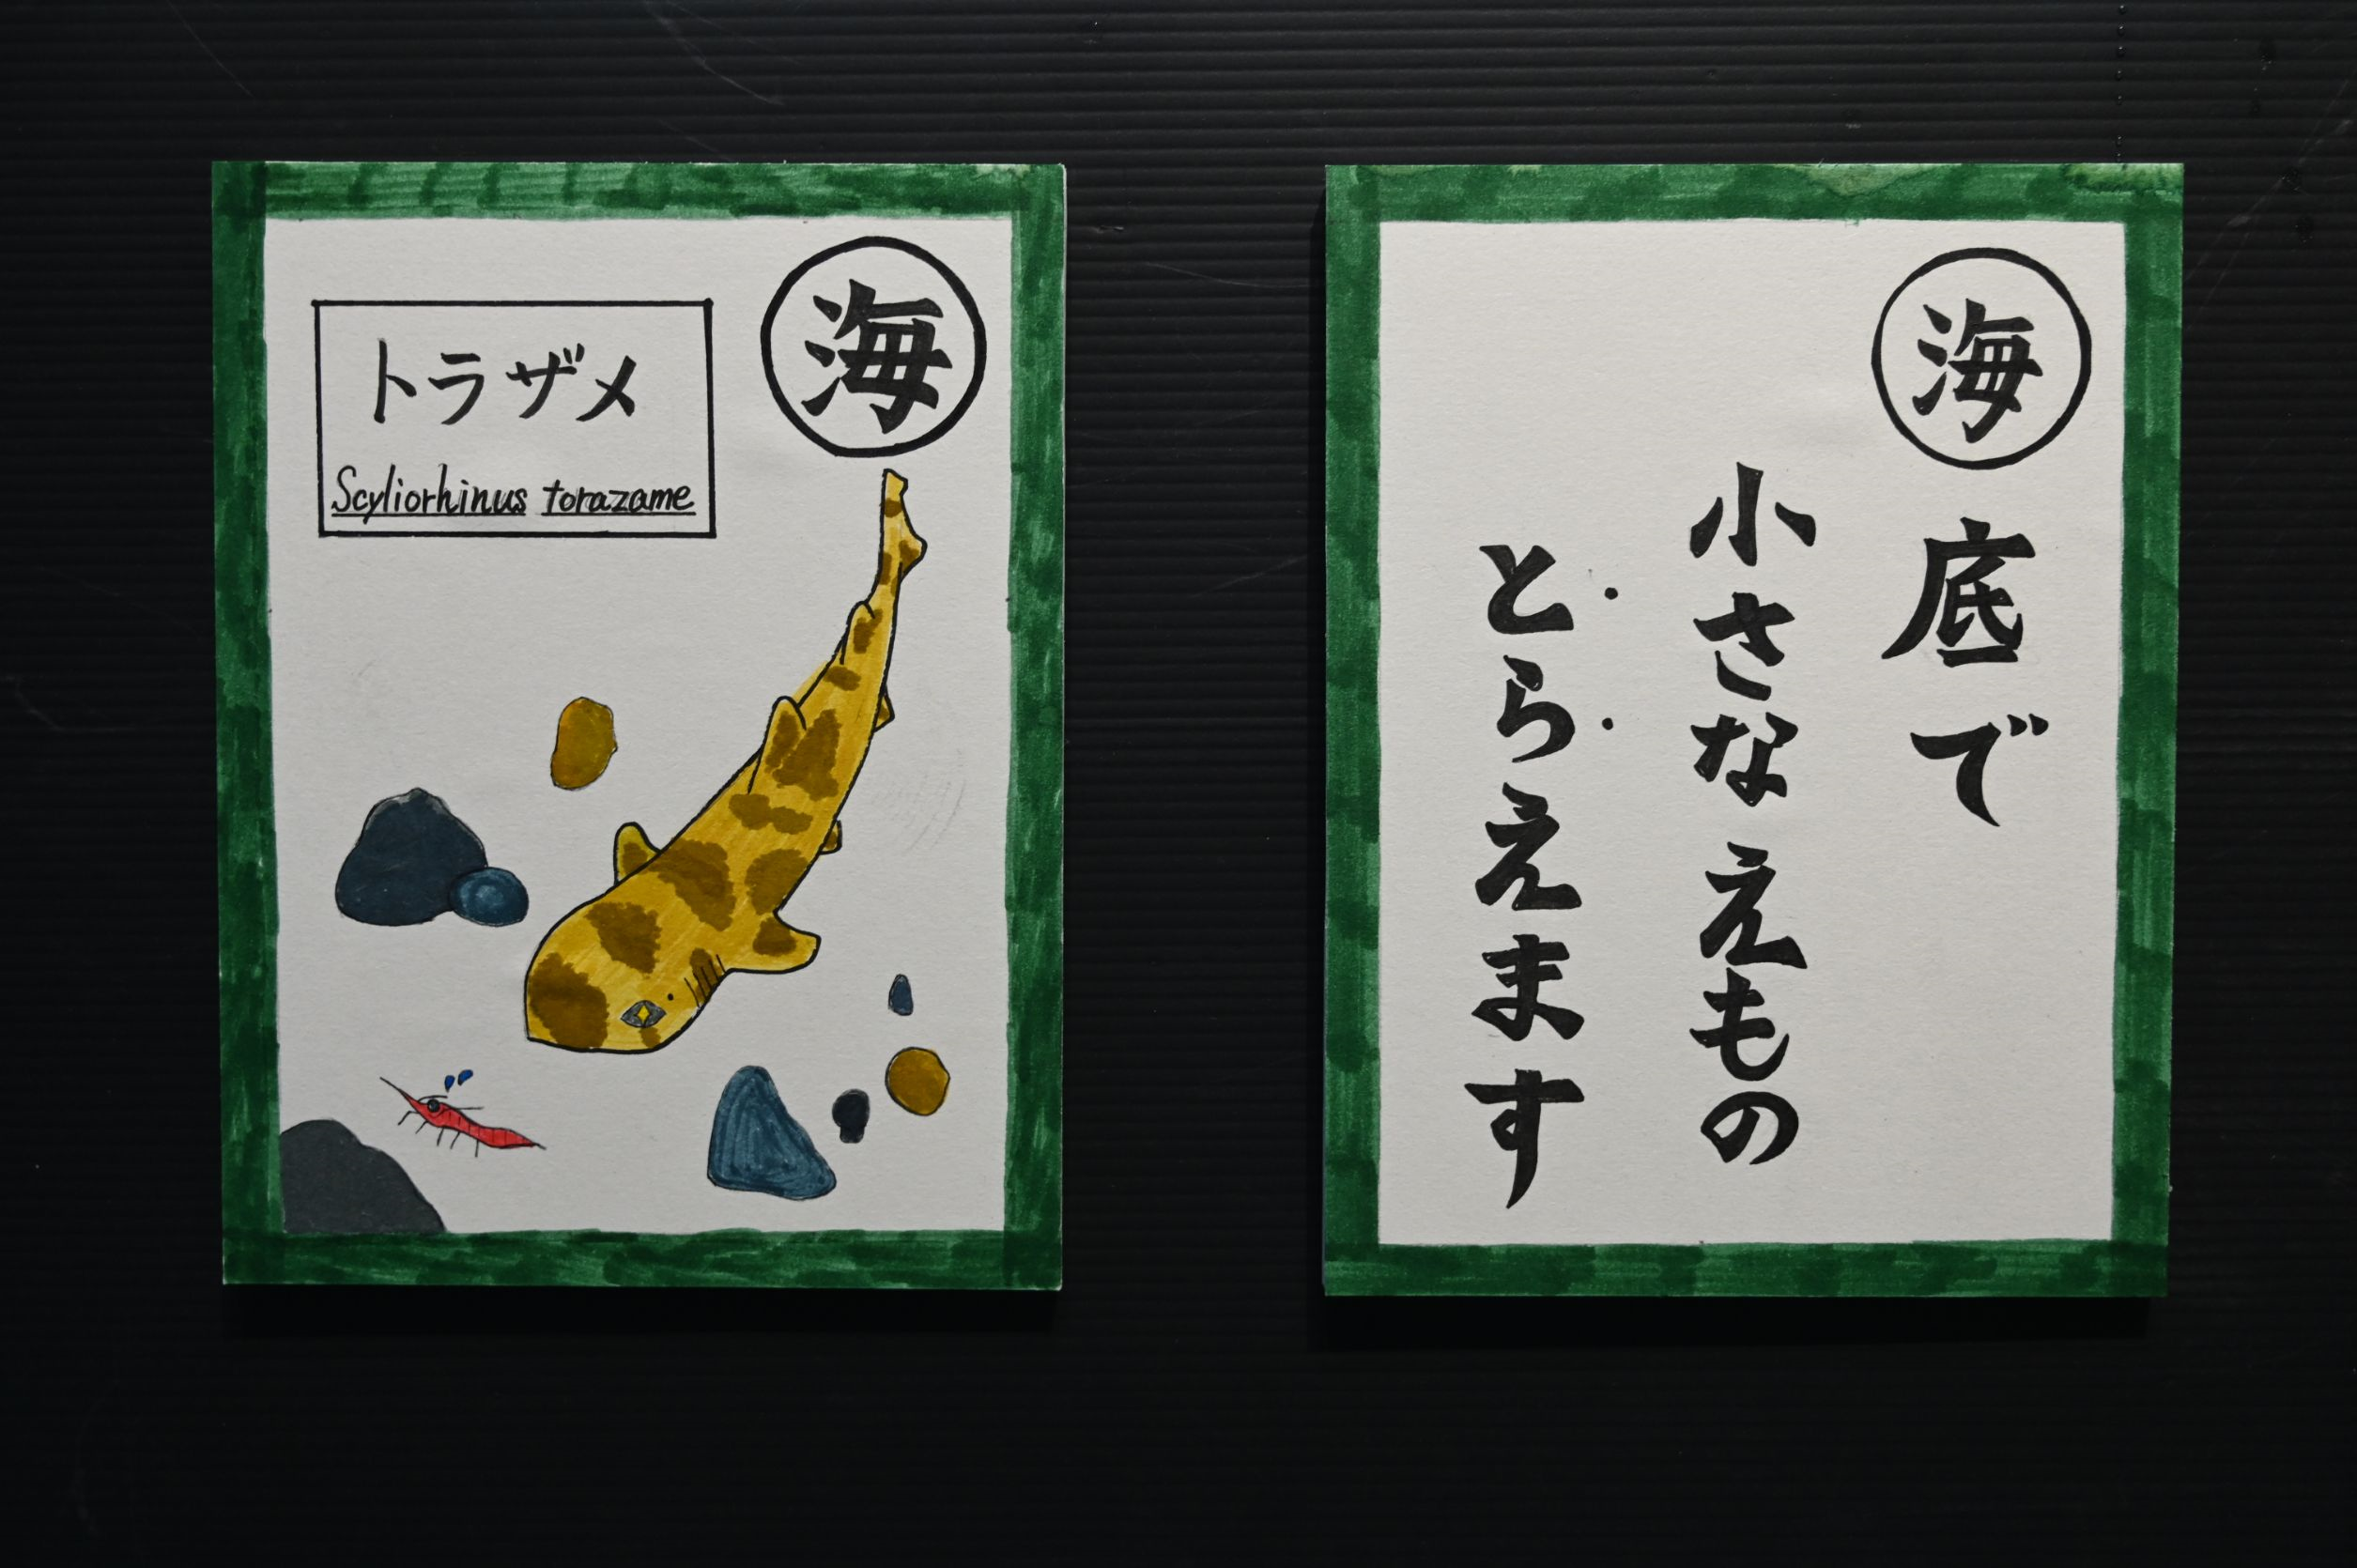 海
トラザメ
Scyliorhinus torazame
海底で
小さなえもの
とらえます